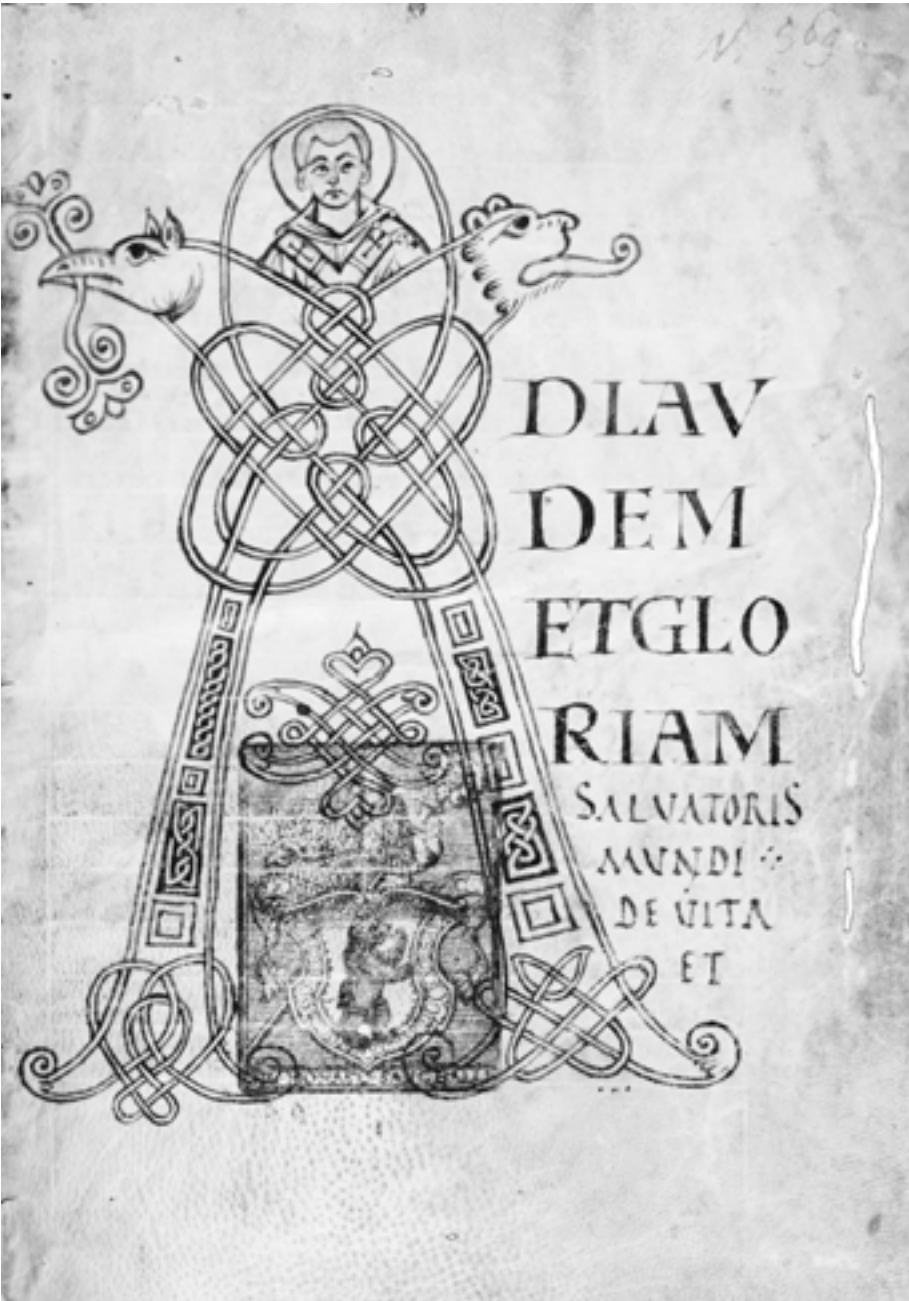 N. 569
A
DLAV
DEM
ETGLO
RIAM
SALVATORIS
MUNDI
DE VITA
ET